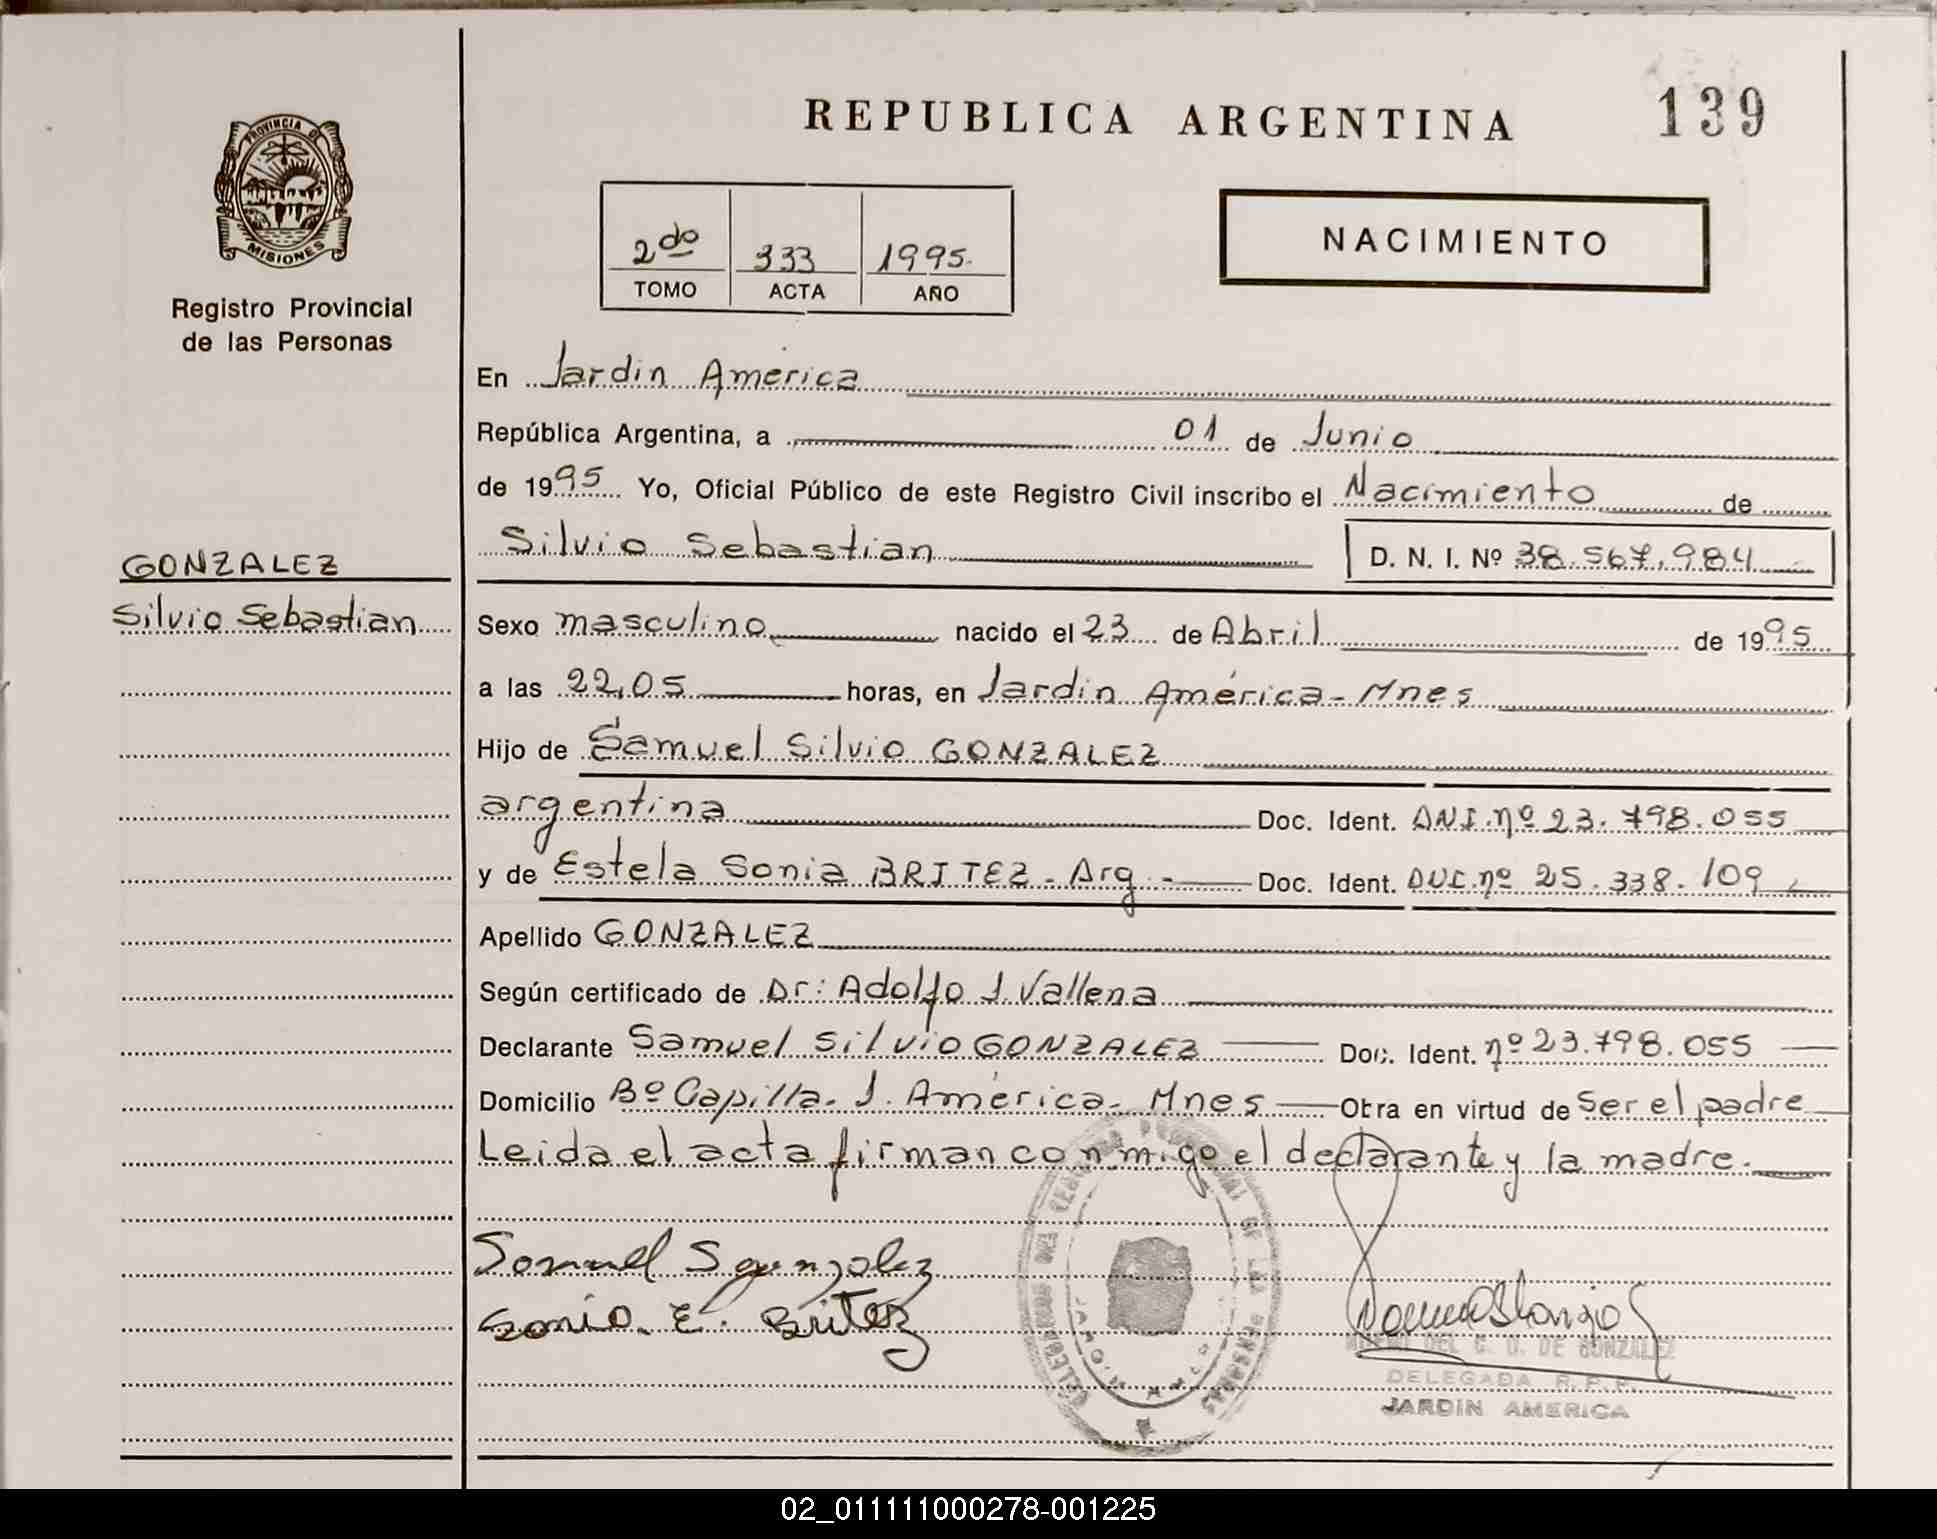 REPUBLICA ARGENTINA
139
PROVINCIA DE
MISIONES
Registro Provincial
de las Personas
2do 333 1995.
TOMO ACTA AÑO
NACIMIENTO
En Jardin América
República Argentina, a 01 de Junio
de 1995 Yo, Oficial Público de este Registro Civil inscribo el Nacimiento de
Silvio Sebastian D. N. I. Nº 38.567.984
GONZALEZ
Silvio Sebastian
Sexo masculino nacido el 23 de Abril de 1995
a las 22,05 horas, en Jardin América - Mnes
Hijo de Samuel Silvio GONZALEZ
argentina Doc. Ident. DNI. nº 23.798.055
y de Estela Sonia BRITEZ - Arg - Doc. Ident. DUC. nº 25.338.109
Apellido GONZALEZ
Según certificado de Dr: Adolfo J. Vallena
Declarante Samuel Silvio GONZALEZ Doc. Ident. nº 23.798.055
Domicilio Bº Capilla - J. América - Mnes Obra en virtud de Ser el padre
Leida el acta firman conmigo el declarante y la madre.
Samuel S gonzalez
Sonia. E. Britez
NOEMI DEL C. D. DE GONZALEZ
DELEGADA R.P.P.
JARDIN AMERICA
02_011111000278-001225